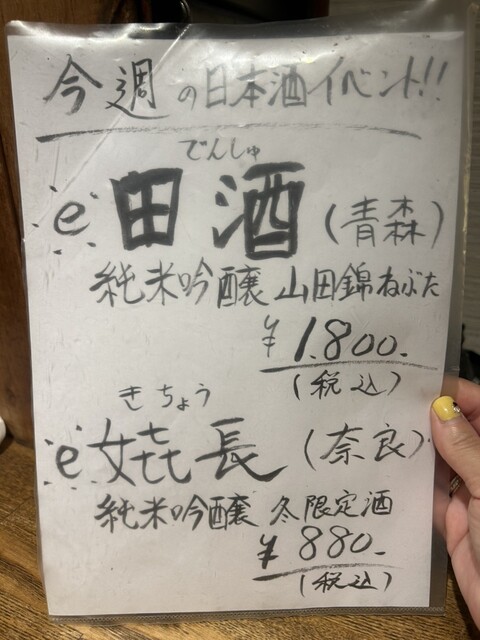 今週の日本酒イベント!!
でんしゅ
e 田酒 (青森)
純米吟醸 山田錦ねぶた
¥1,800.-
(税込)
きちょう
e 嬉長 (奈良)
純米吟醸 冬限定酒
¥880.-
(税込)